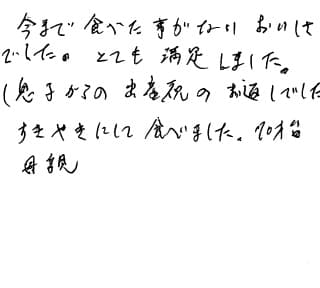 今まで食べた事がない おいしさ
でした。とても 満足しました。
(息子からの 出産祝の お返しでした
すきやきにして 食べました。70才
母親